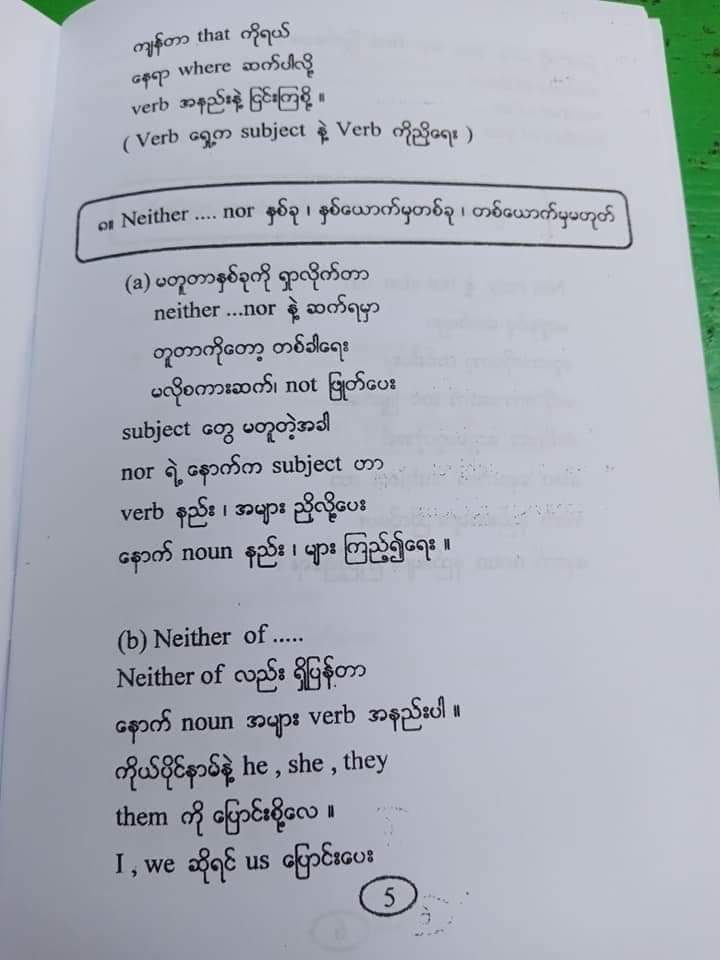 ကျန်တာ that ကိုရယ်
နေရာ where ဆက်ပါလို့
verb အနည်းနဲ့ ငြင်းကြစို့ ။
( Verb ရှေ့က subject နဲ့ Verb ကိုညှိရေး )
၈။ Neither .... nor နှစ်ခု ၊ နှစ်ယောက်မှတစ်ခု ၊ တစ်ယောက်မှမဟုတ်
(a) မတူတာနှစ်ခုကို ရှာလိုက်တာ
neither ...nor နဲ့ ဆက်ရမှာ
တူတာကိုတော့ တစ်ခါရေး
မလိုစကားဆက်၊ not ဖြုတ်ပေး
subject တွေ မတူတဲ့အခါ
nor ရဲ့ နောက်က subject ဟာ
verb နည်း ၊ အများ ညှိလို့ပေး
နောက် noun နည်း ၊ များ ကြည့်၍ရေး ။
(b) Neither of .....
Neither of လည်း ရှိပြန်တာ
နောက် noun အများ verb အနည်းပါ ။
ကိုယ်ပိုင်နာမ်နဲ့ he , she , they
them ကို ပြောင်းစို့လေ ။
I , we ဆိုရင် us ပြောင်းပေး
5